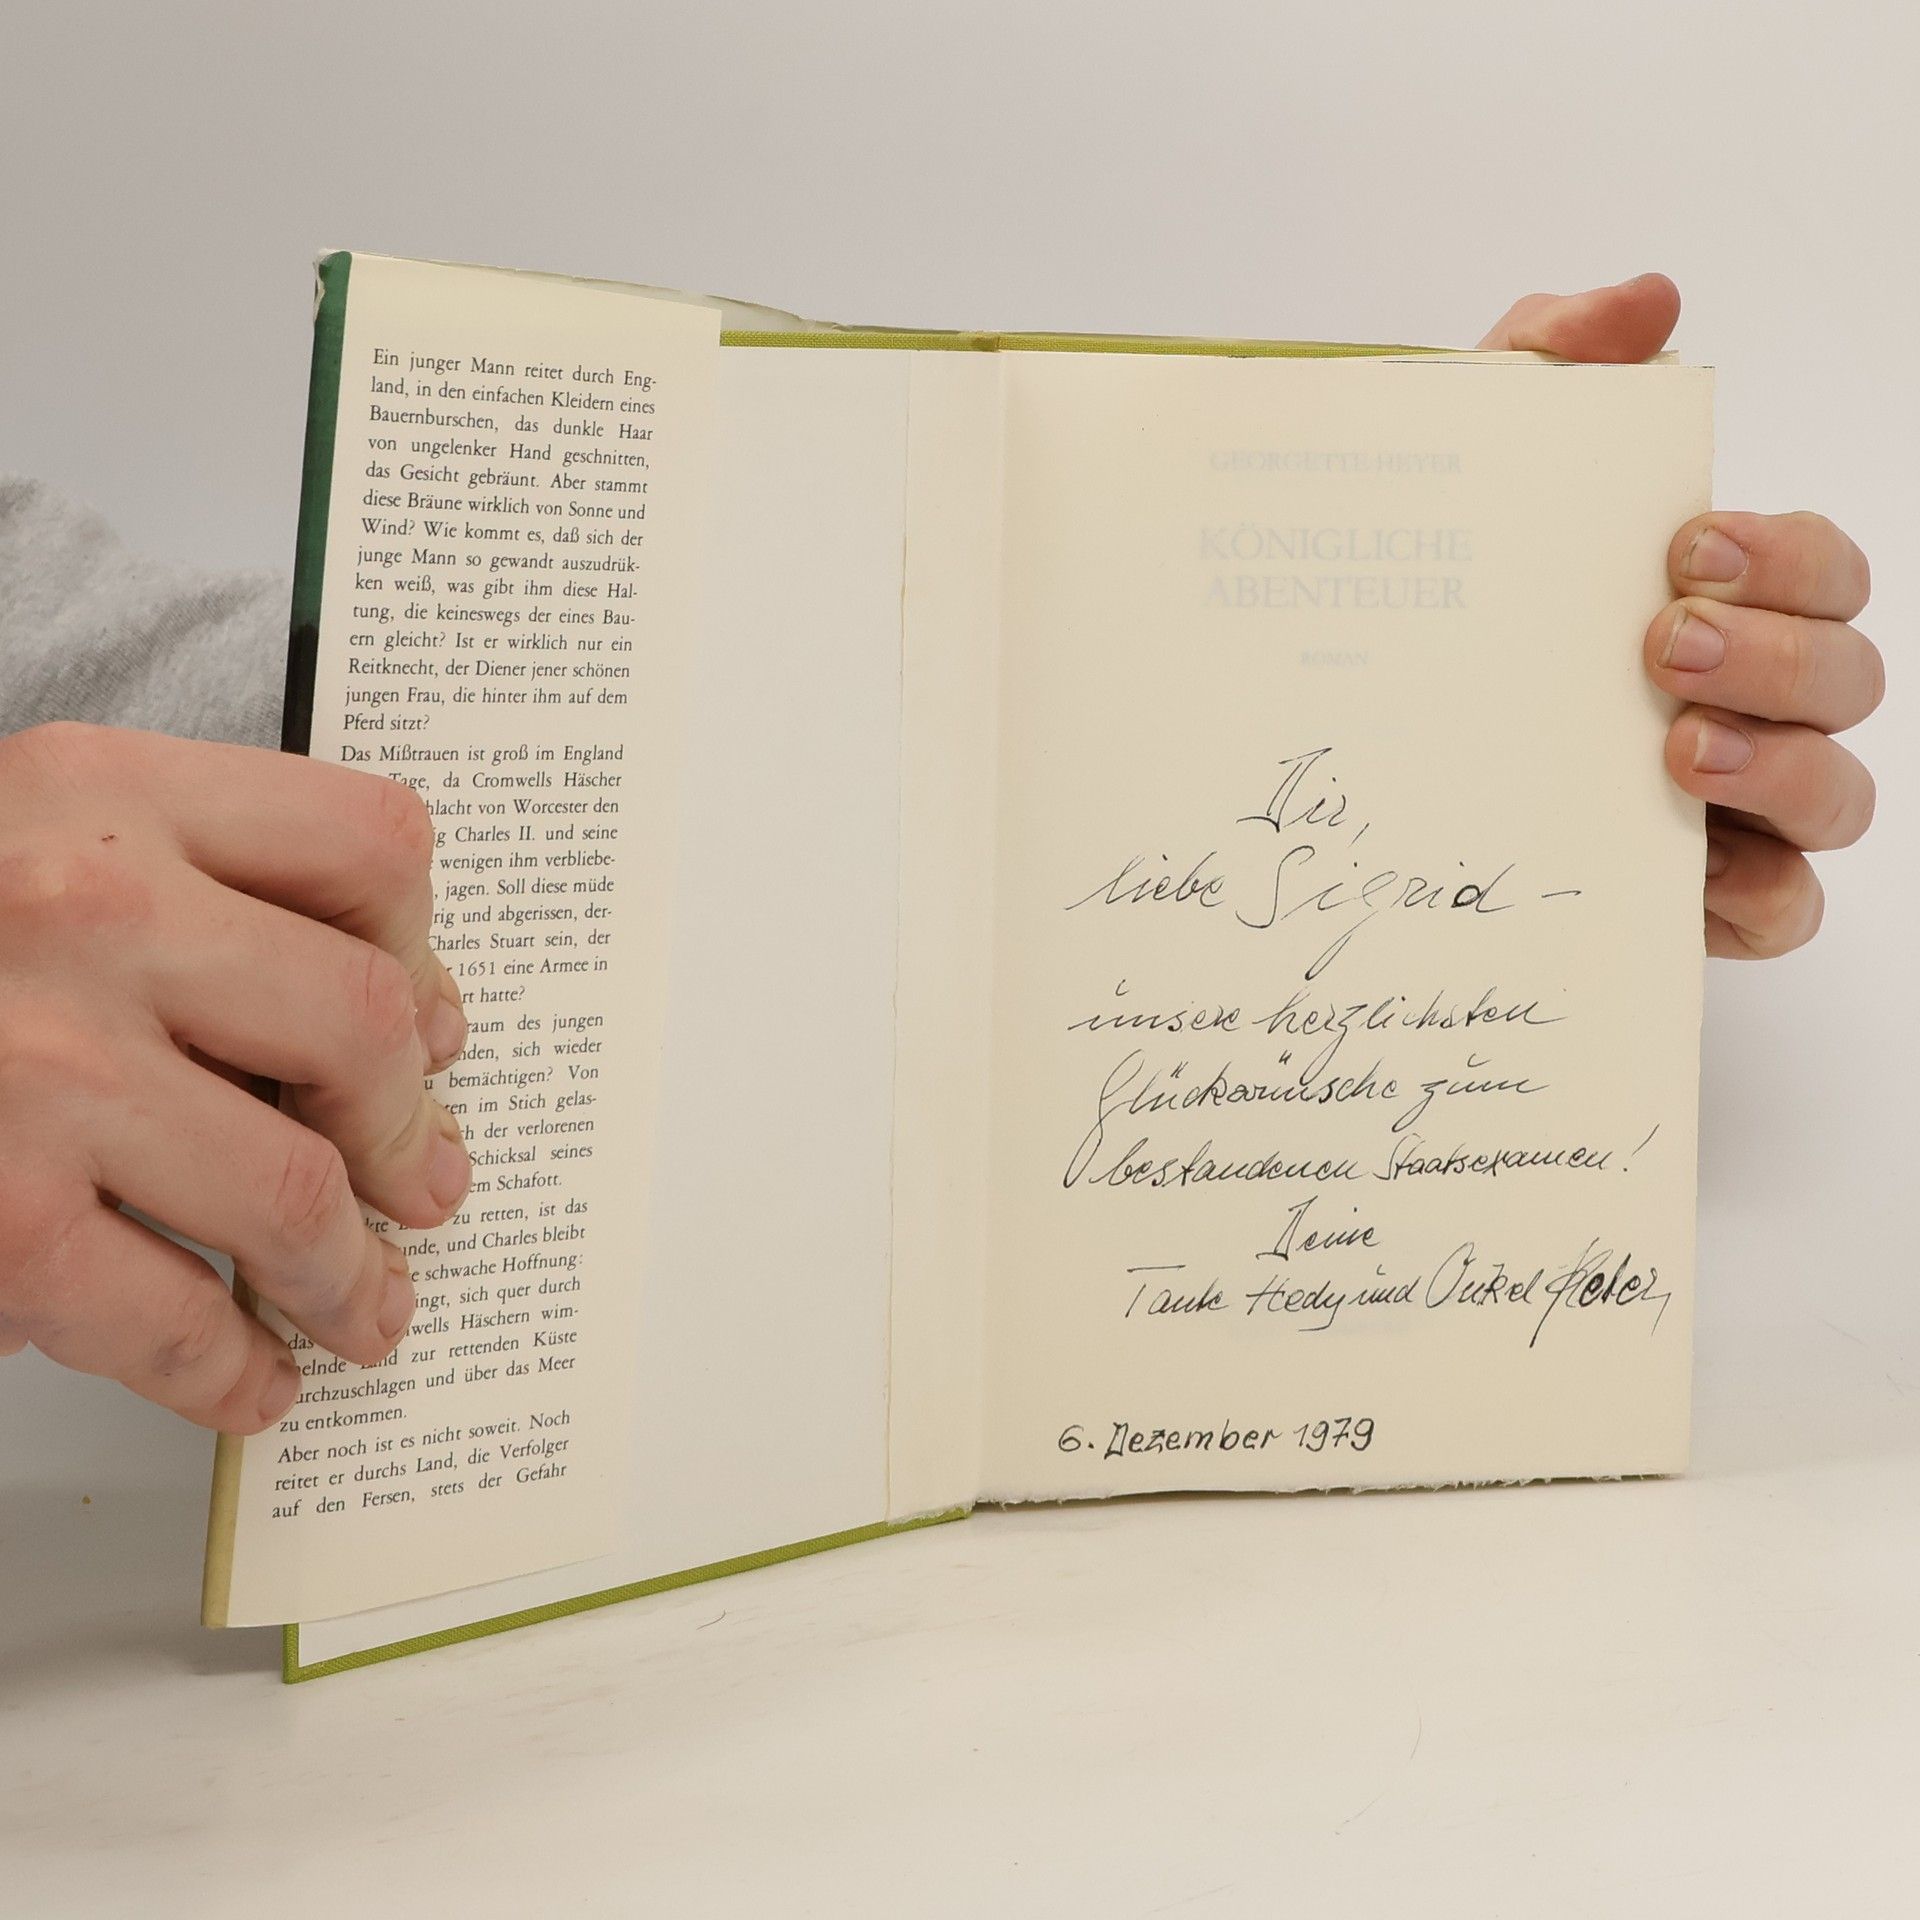 Ein junger Mann reitet durch Eng-
land, in den einfachen Kleidern eines
Bauernburschen, das dunkle Haar
von ungelenker Hand geschnitten,
das Gesicht gebräunt. Aber stammt
diese Bräune wirklich von Sonne und
Wind? Wie kommt es, daß sich der
junge Mann so gewandt auszudrük-
ken weiß, was gibt ihm diese Hal-
tung, die keineswegs der eines Bau-
ern gleicht? Ist er wirklich nur ein
Reitknecht, der Diener jener schönen
jungen Frau, die hinter ihm auf dem
Pferd sitzt?
Das Mißtrauen ist groß im England
Tage, da Cromwells Häscher
von Worcester den
Charles II. und seine
wenigen ihm verbliebe-
jagen. Soll diese müde
und abgerissen, der-
Charles Stuart sein, der
1651 eine Armee in
hatte?
des jungen
sich wieder
bemächtigen? Von
im Stich gelas-
der verlorenen
Schicksal seines
Schafott.
zu retten, ist das
und Charles bleibt
schwache Hoffnung:
sich quer durch
Häschern wim-
Land zur rettenden Küste
und über das Meer
zu entkommen.
Aber noch ist es nicht soweit. Noch
reitet er durchs Land, die Verfolger
auf den Fersen, stets der Gefahr
GEORGETTE HEYER
KÖNIGLICHE
ABENTEUER
ROMAN
Dir,
liebe Sigrid –
unsere herzlichsten
Glückwünsche zum
bestandenen Staatsexamen!
Deine
Tante Hedy und Onkel Peter
6. Dezember 1979